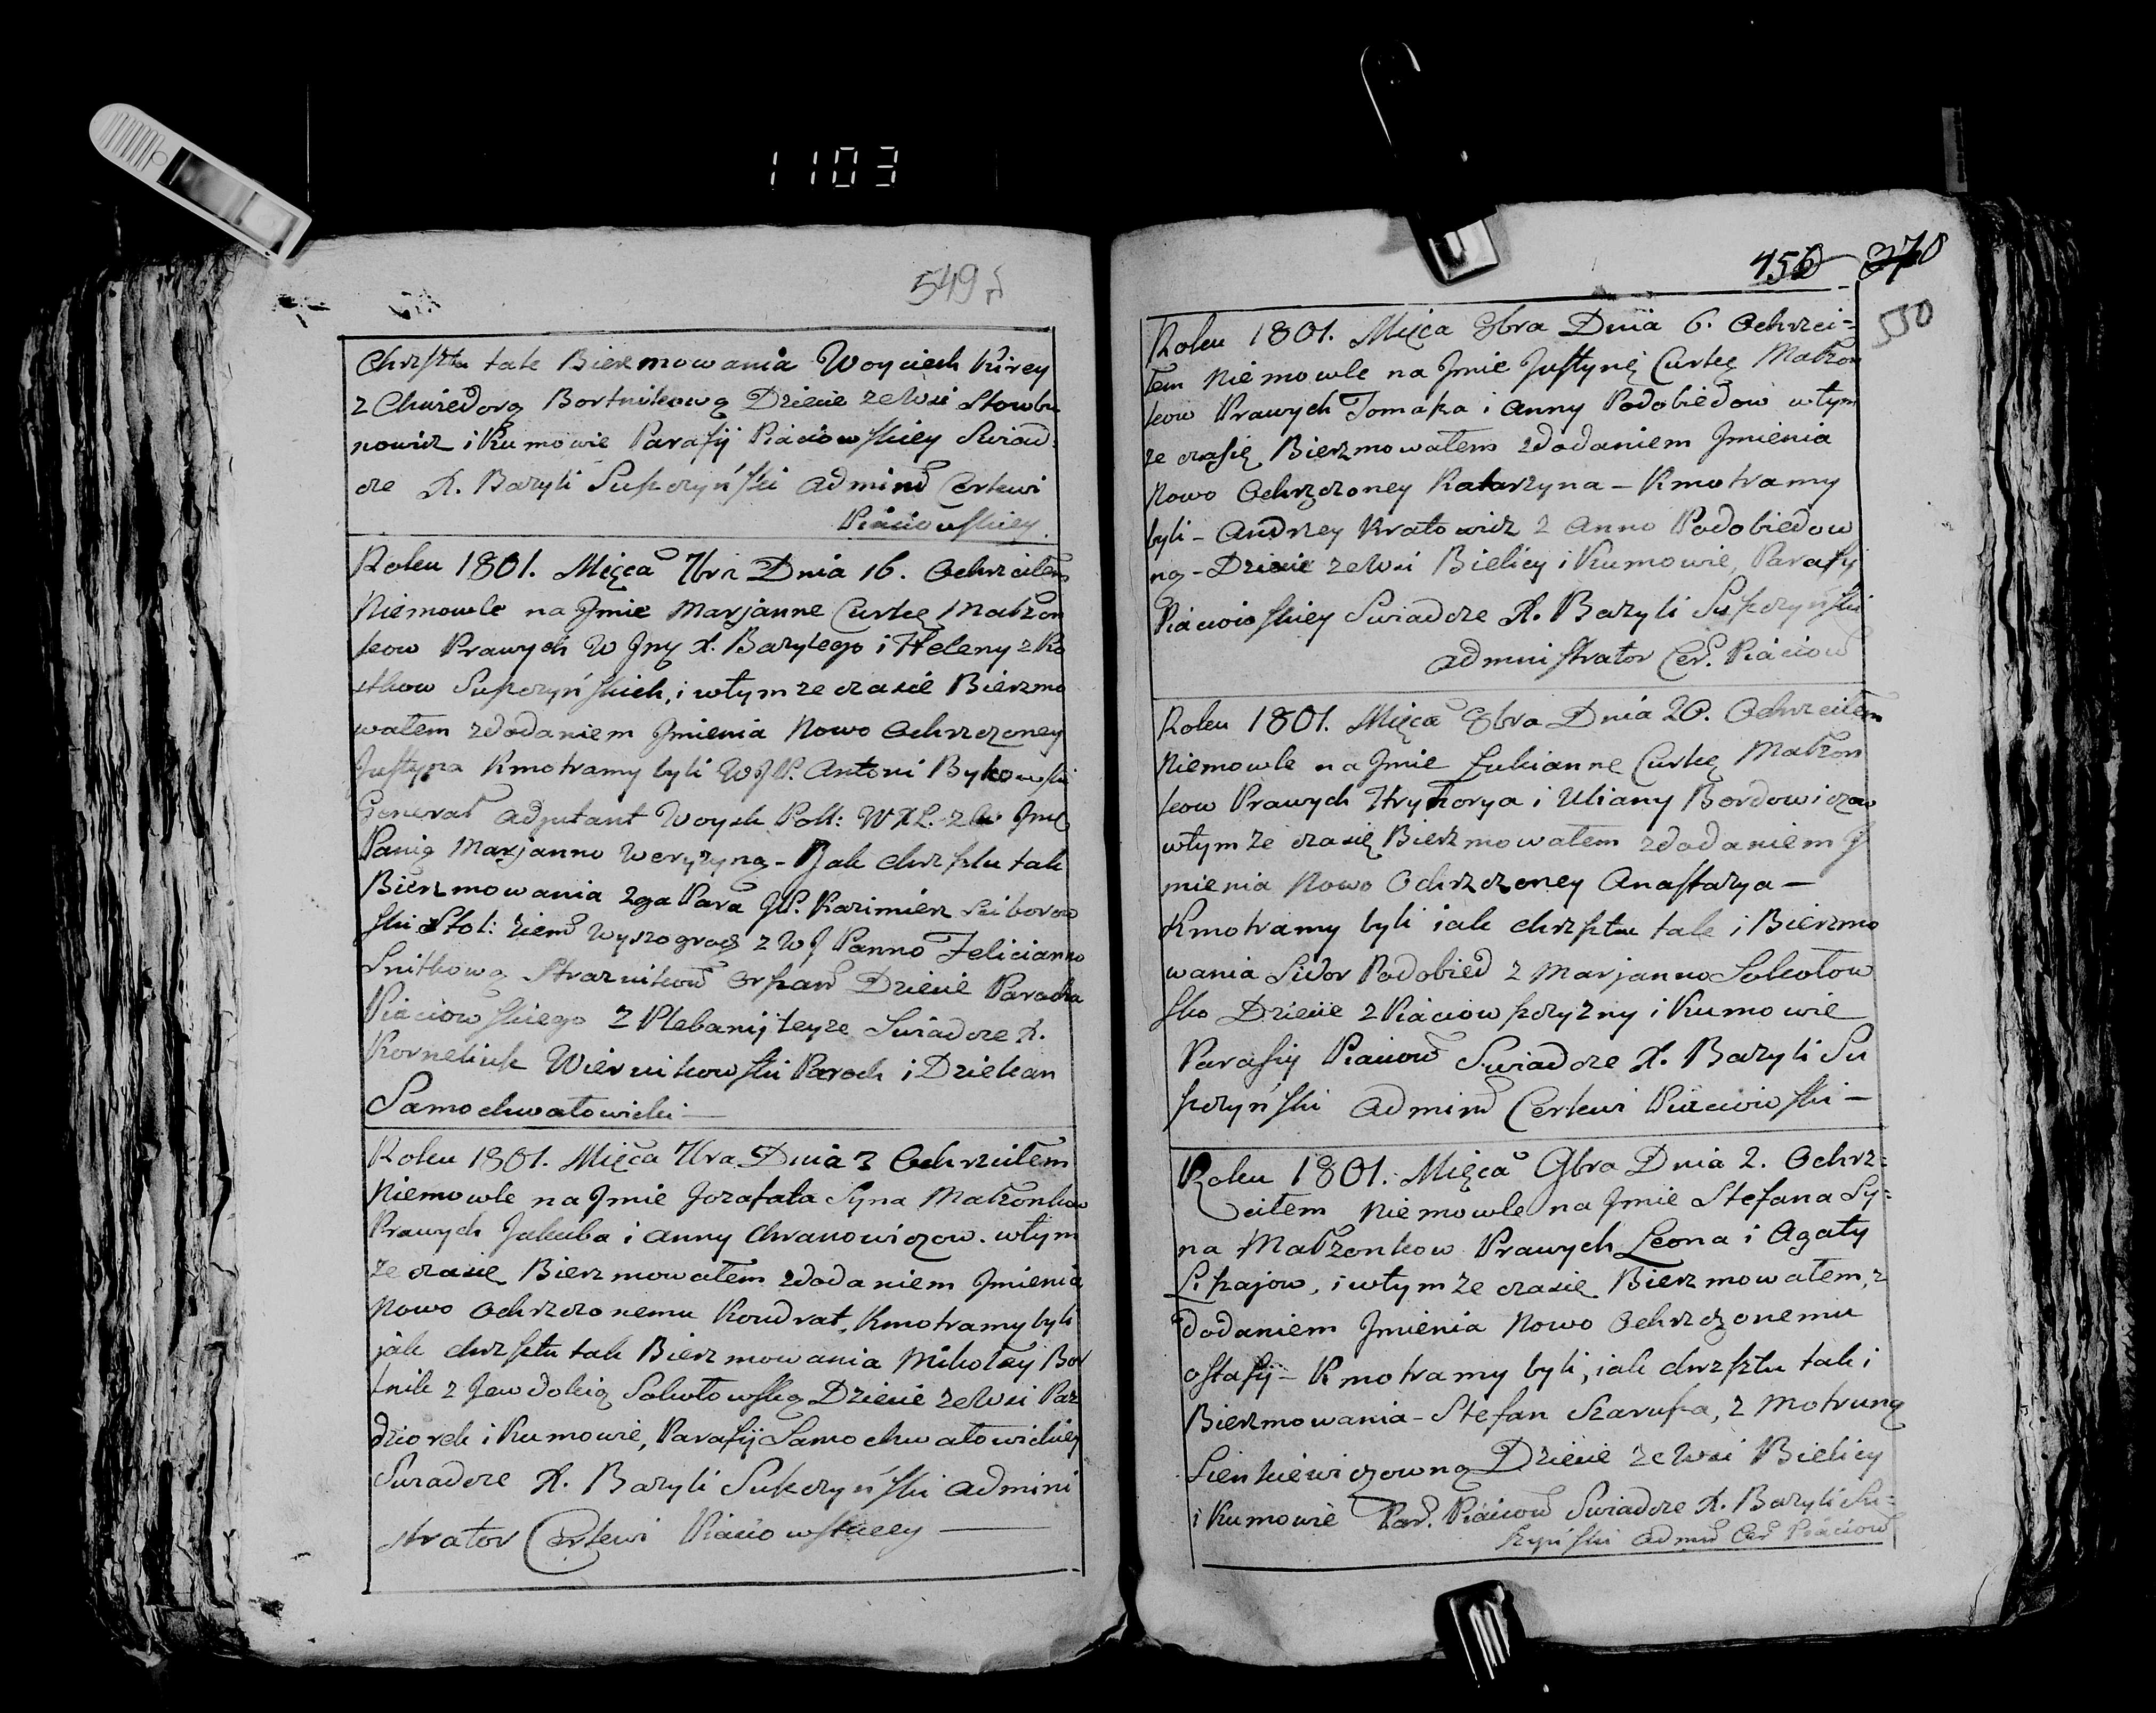 1103
549
Chrzstu tak Bierzmowania Woyciech Kirey
z Chwiedorą Bortnikową Dziecie ze Wsi Stowbu
nowicz i Kumowie Parafij Piaciowskiey Swiad:
cze X. Bazyli Supczyński Admind Cerkwi
Piaciowskiey.
Roku 1801. Mięca 7bra Dnia 16. Ochrzcilem
Niemowle na Jmie Marjanne Curkę Małżon
kow Prawych W Jmę X. Bazylego i Heleny z Ko
Supczyńskich, i wtymze czasie Bierzmo
wałem zdodaniem Jmienia Nowo Ochrzczoney
Justyna Kmotramy byli WJP. Antoni Bykowski
Generał Adjutant Woysk Poll: WXL. z W Jmę
Panią Marjanno Weryzyną - Jak chrzstu tak
Bierzmowania 2ga Para JP. Kazimierz Sciborow
ski Stol: ziem Wyszogrod z WJ Panno Felicianno
Snitkową Straznikow Orszan Dziecie Parocha
Piaciowskiego z Plebanij teyze Swiadcze X.
Korneliusz Wiernikowski Paroch i Dziekan
Samochwałowicki —
Roku 1801. Mięca 7bra Dnia 3 Ochrzcilem
Niemowle na Jmie Jozafata Syna Małżonkow
Prawych Jakuba i Anny Chranowiczow. wtym
ze czasie Bierzmowałem zdodaniem Jmienia
Nowo Ochrzczonemu Kondrat, Kmotramy byli
jak chrzstu tak Bierzmowania Mikołay Bor
tnik z Jewdokią Sokołowską Dziecie ze Wsi Paz
dziorek i Kumowie, Parafij Samochwałowickiey
Swiadcze X. Bazyli Supczyński Admini
strator Cerkwi Piaciowskiey —
456 — 270
550
Roku 1801. Mięca 8bra Dnia 6. Ochrzci=
łem Niemowle na Jmie Justynę Curkę Małżon
kow Prawych Tomasza i Anny Podobiedow wtym
ze czasię Bierzmowałem zdodaniem Jmienia
Nowo Ochrzczoney Katarzyna - Kmotramy
byli - Andrzey Kratowicz z Anno Podobiedow
ną - Dziecie ze Wsi Bielicy i Kumowie, Parafij
Piaciowskiey Swiadcze X. Bazyli Supczyński
Administrator Cer. Piaciow
Roku 1801. Mięca 8bra Dnia 20. Ochrzcilem
Niemowle na Jmie Łukianne Curkę Małżon
kow Prawych Hryhorya i Uliany Bordowiczow
wtymze czasię Bierzmowałem zdodaniem J
mienia Nowo Ochrzczoney Anastazya —
Kmotramy byli iak chrzstu tak i Bierzmo
wania Sidor Podobied z Marjanno Sokołow
sko Dziecie z Piaciowszczyzny i Kumowie
Parafij Piaciow Swiadcze X. Bazyli Su
pczyński Admind Cerkwi Piaciowski —
Roku 1801. Mięca 9bra Dnia 2. Ochrz=
ciłem Niemowle na Jmie Stefana Sy=
na Małżonkow Prawych Leona i Agaty
Lipajow, i wtymze czasie Bierzmowałem, z
dodaniem Jmienia Nowo Ochrzczonemu
Ostafij - Kmotramy byli, iak chrzstu tak i
Bierzmowania - Stefan Szarupa, z Motruną
Sienkiewiczowną Dziecie ze Wsi Bielicy
i Kumowie Par. Piaciow Swiadcze X. Bazyli Su=
Admin Cer Piaciow